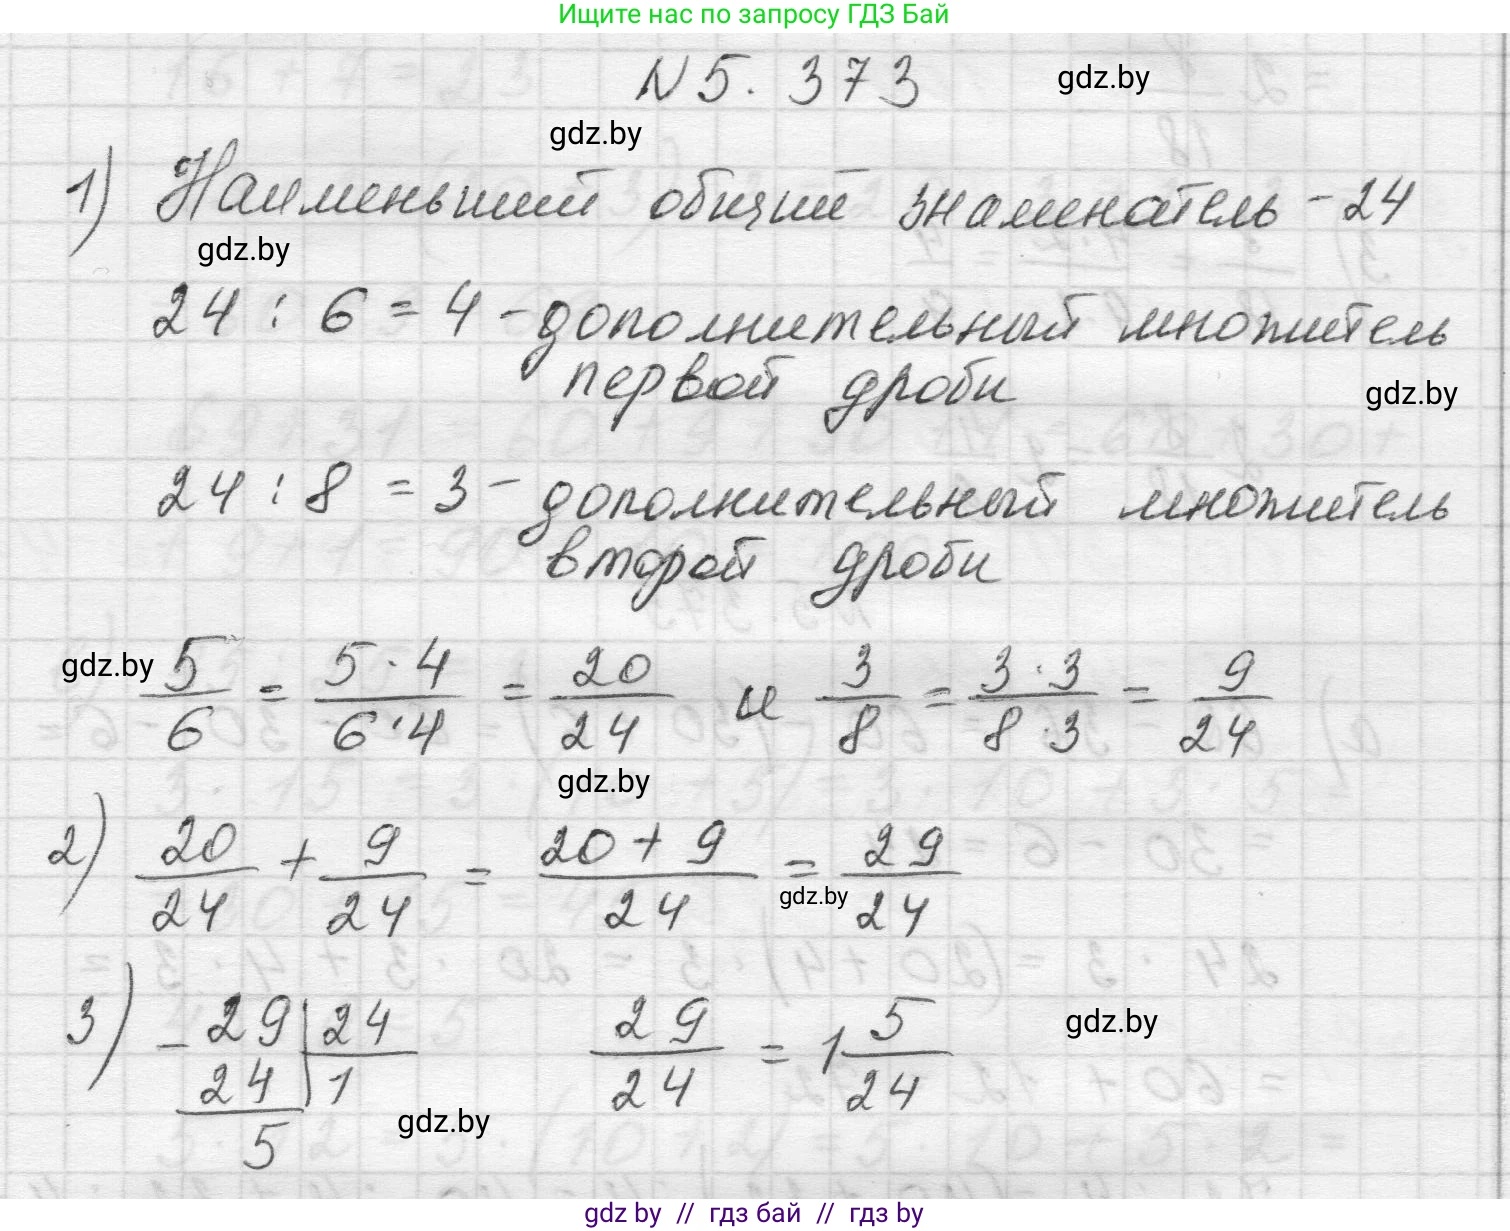 Ищите нас по запросу ГДЗ Бай
N 5. 373
gdz.by
gdz.by
1) Наименьший общий знаменатель - 24
gdz.by
24 : 6 = 4 - дополнительный множитель
первой дроби
gdz.by
24 : 8 = 3 - дополнительный множитель
второй дроби
gdz.by
5/6 = 5·4/6·4 = 20/24 и 3/8 = 3·3/8·3 = 9/24
gdz.by
2) 20/24 + 9/24 = 20+9/24 = 29/24
gdz.by
3) - 29 | 24 29/24 = 1 5/24
gdz.by
24 | 1
gdz.by
5
gdz by // гдз бай // гдз by